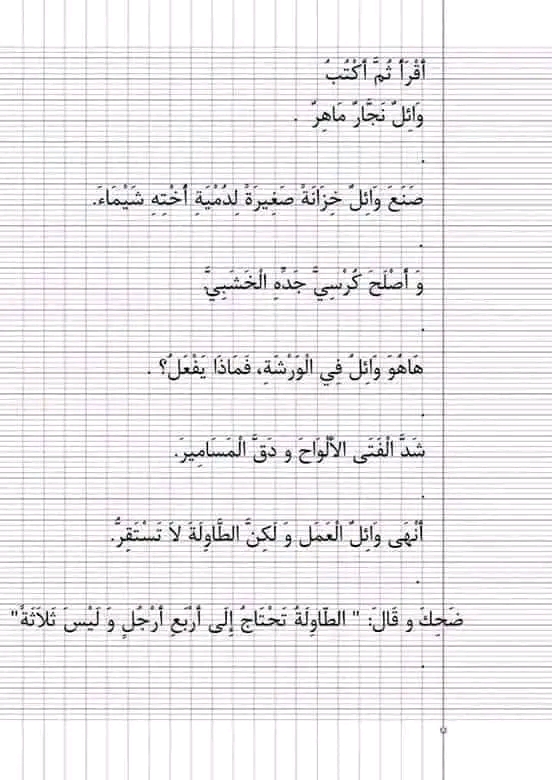 أَقْرَأُ ثُمَّ أَكْتُبُ
وَائِلٌ نَجَّارٌ مَاهِرٌ .
.
صَنَعَ وَائِلٌ خِزَانَةً صَغِيرَةً لِدُمْيَةِ أُخْتِهِ شَيْمَاءَ.
.
وَ أَصْلَحَ كُرْسِيَّ جَدِّهِ الْخَشَبِيَّ
.
هَاهُوَ وَائِلٌ فِي الْوَرْشَةِ، فَمَاذَا يَفْعَلُ؟ .
.
شَدَّ الْفَتَى الأَلْوَاحَ و دَقَّ الْمَسَامِيرَ.
.
أَنْهَى وَائِلٌ الْعَمَل وَ لَكِنَّ الطَّاوِلَةَ لاَ تَسْتَقِرُّ.
.
ضَحِكَ و قَالَ: " الطَّاوِلَةُ تَحْتَاجُ إِلَى أَرْبَعِ أَرْجُلٍ وَ لَيْسَ ثَلاَثَةً"
.